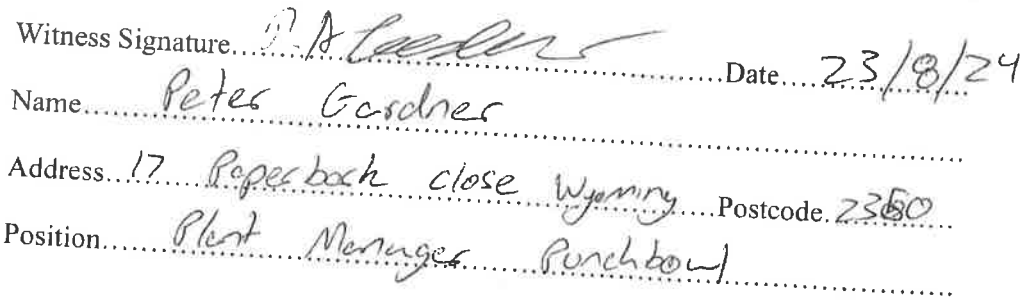 Witness Signature.................Date....23/8/24
Name......Peter Gardner......
Address..17 Paperbark close Wyoming....Postcode.
Position......Plant Manager Punchbowl......